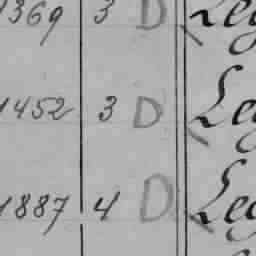 1369 3 D Leg
1452 3 D Leg
1887 4 D Leg